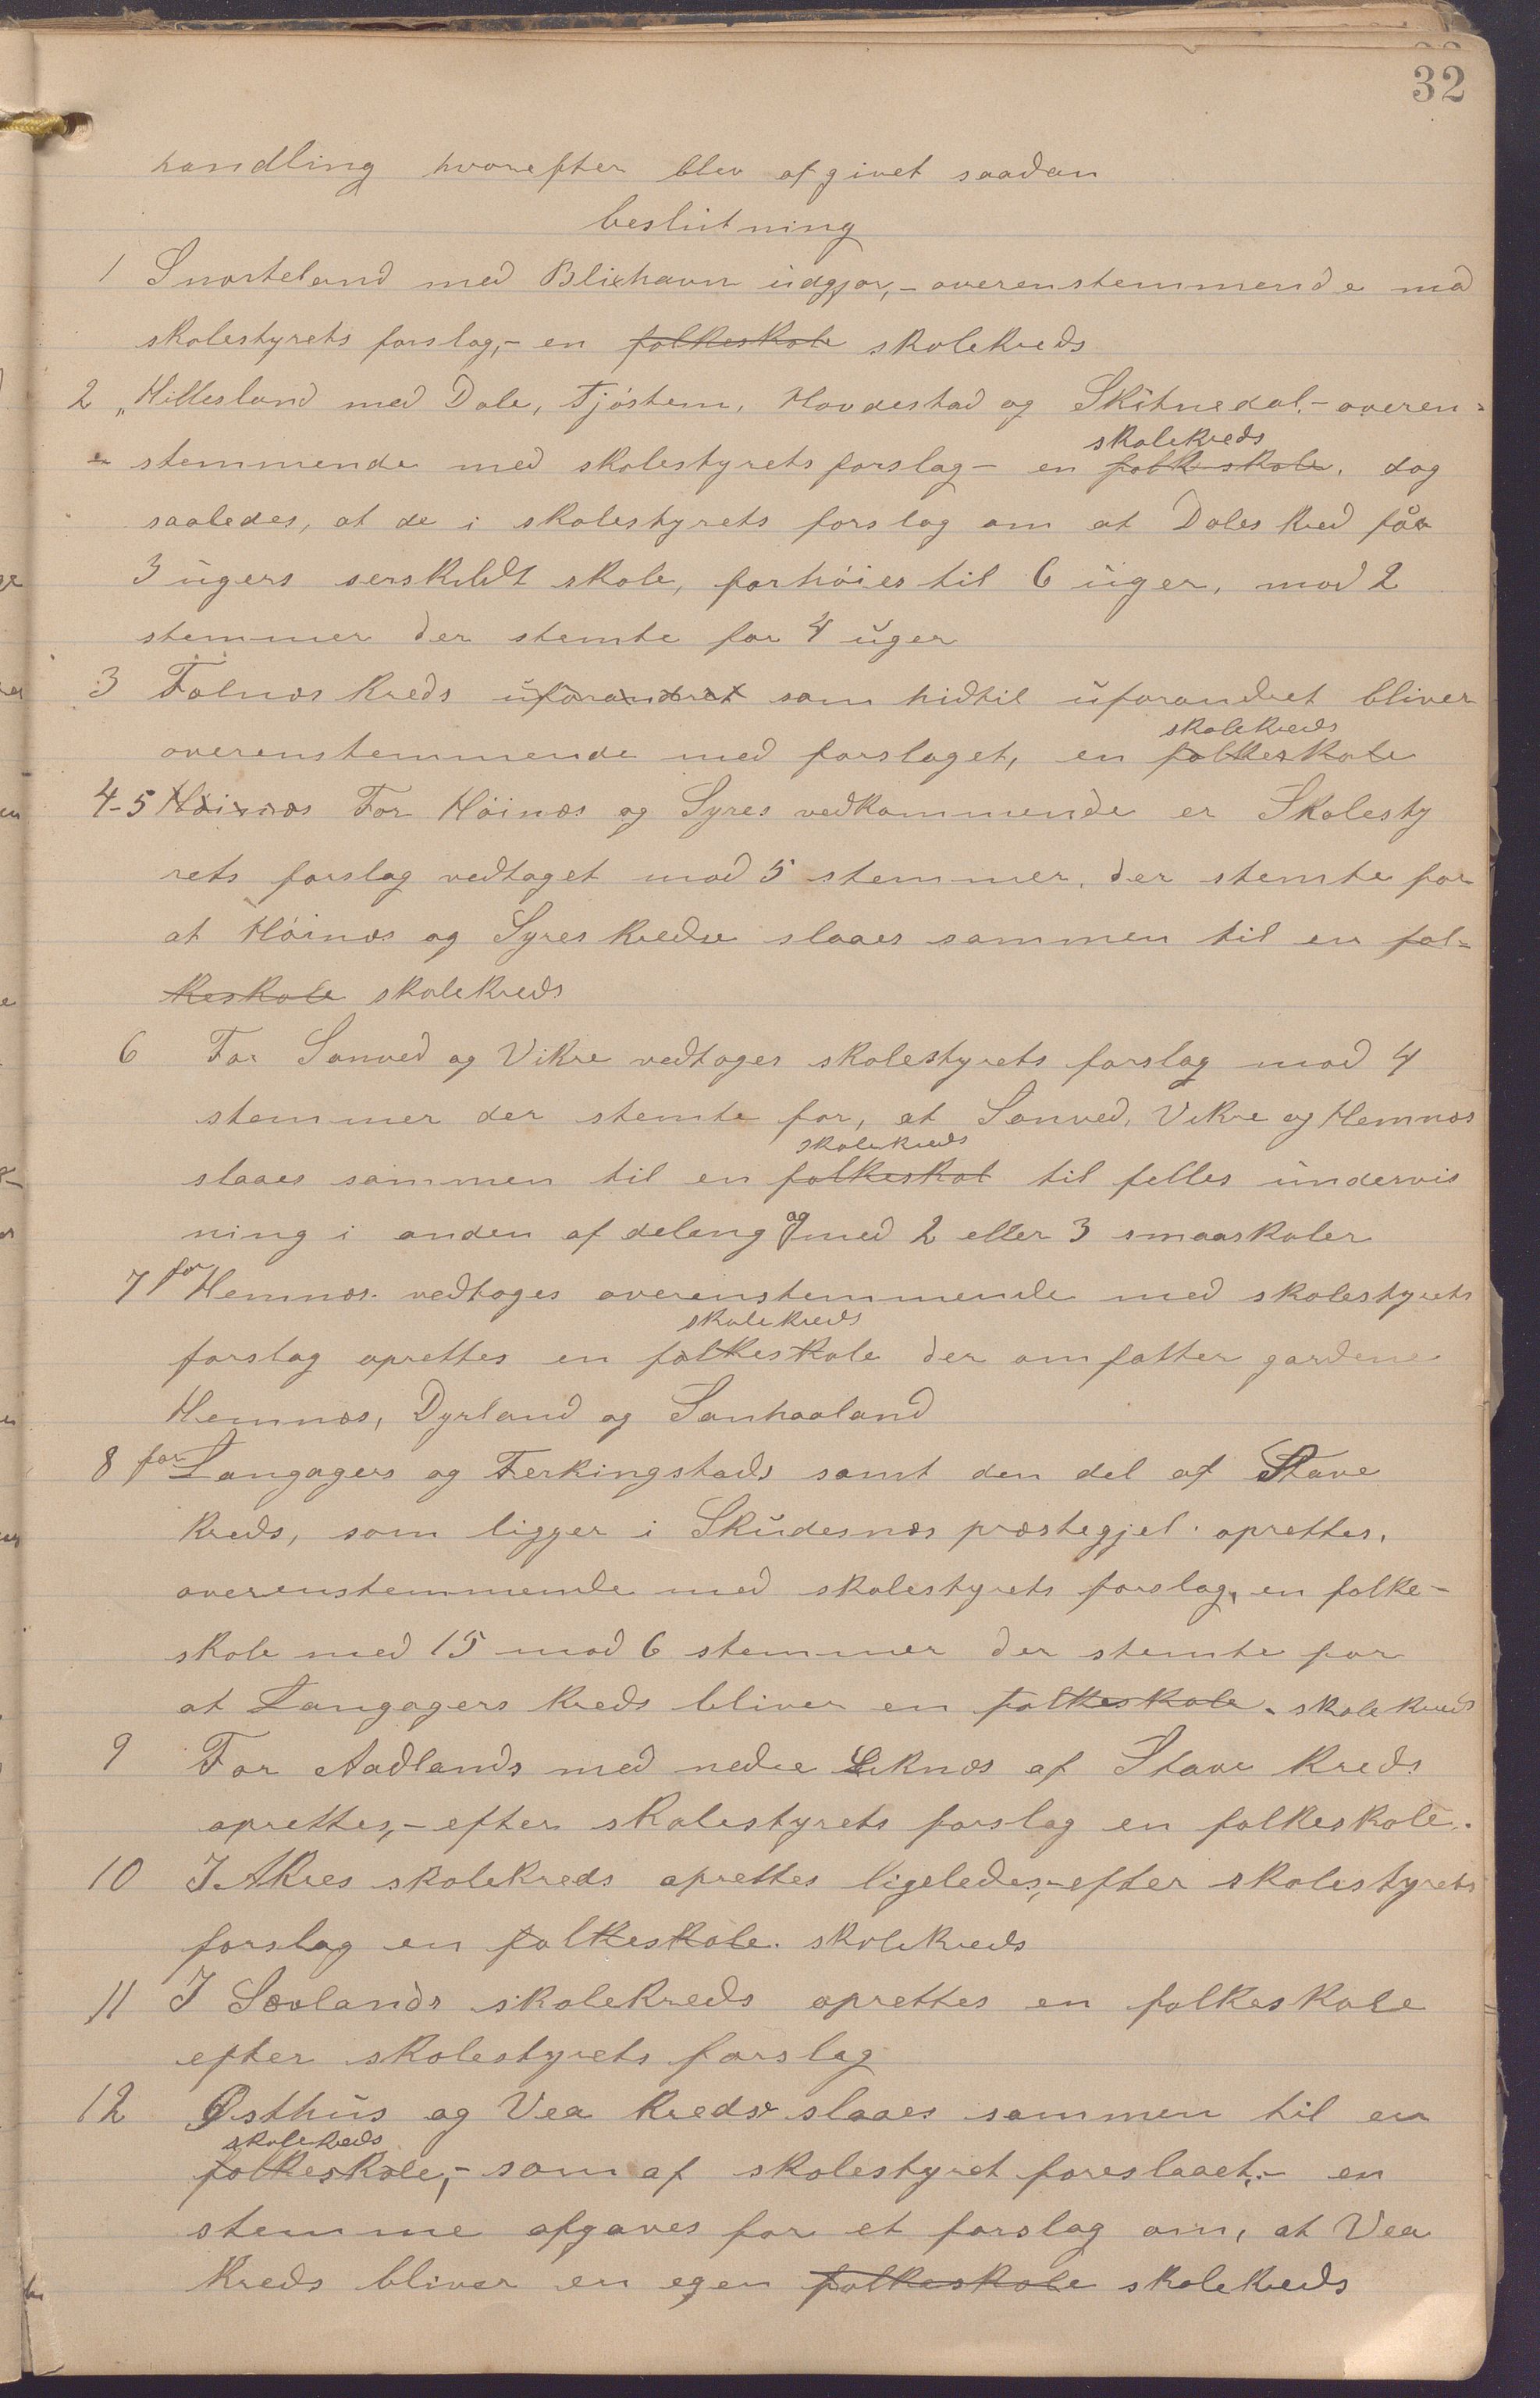 32
handling hvorefter blev afgivet saadan
beslutning
1 Snorteland med Blikhavn udgjør,- overenstemmende med
skolestyrets forslag,- en folkeskole skolekreds
2 „Hillesland med Dale, Tjøstem, Hovdestad og Skitnedal,- overen-
skolekreds
- stemmende med skolestyrets forslag- en folkeskole, dog
saaledes, at de i skolestyrets forslag om at Dales kred får
3 ugers serskildt skole, forhøies til 6 uger, mod 2
stemmer der stemte for 4 uger
3 Falnæs kreds uforandret som hidtil uforandret bliver
skolekreds
overenstemmende med forslaget, en folkeskole
4-5 Høinæs For Høinæs og Syres vedkommende er Skolesty
rets forslag vedtaget mod 5 stemmer, der stemte for
at Høinæs og Syres kredse slaaes sammen til en fol-
keskole skolekreds
6 For Sanved og Vikre vedtages skolestyrets forslag mod 4
stemmer der stemte for, at Sanved, Vikre og Hemnæs
skolekreds
slaaes sammen til en folkeskol til felles undervis
ning i anden afdeleng og med 2 eller 3 smaaskoler
7 for Hemnæs vedtages overenstemmende med skolestyrets
skolekreds
forslag oprettes en folkeskole der omfatter gardene
Hemnæs, Dyrland og Sanhaaland
8 for Langagers og Ferkingstads samt den del af Stave
kreds, som ligger i Skudesnæs præstegjel oprettes,
overenstemmende med skolestyrets forslag, en folke-
skole med 15 mod 6 stemmer der stemte for
at Langagers kreds bliver en folkeskole. skolekreds
9 For Aadlands med nedre Liknæs af Stave kreds
oprettes,- efter skolestyrets forslag en folkeskole.
10 I Akres skolekreds oprettes ligeledes,- efter skolestyrets
forslag en folkeskole. skolekreds
11 I Sævlands skolekreds oprettes en folkeskole
efter skolestyrets forslag
12 Østhus og Vea kredse slaaes sammen til en
skolekreds
folkeskole,- som af skolestyret foreslaaet,- en
stemme afgaves for et forslag om, at Vea
kreds bliver en egen folkeskole skolekreds